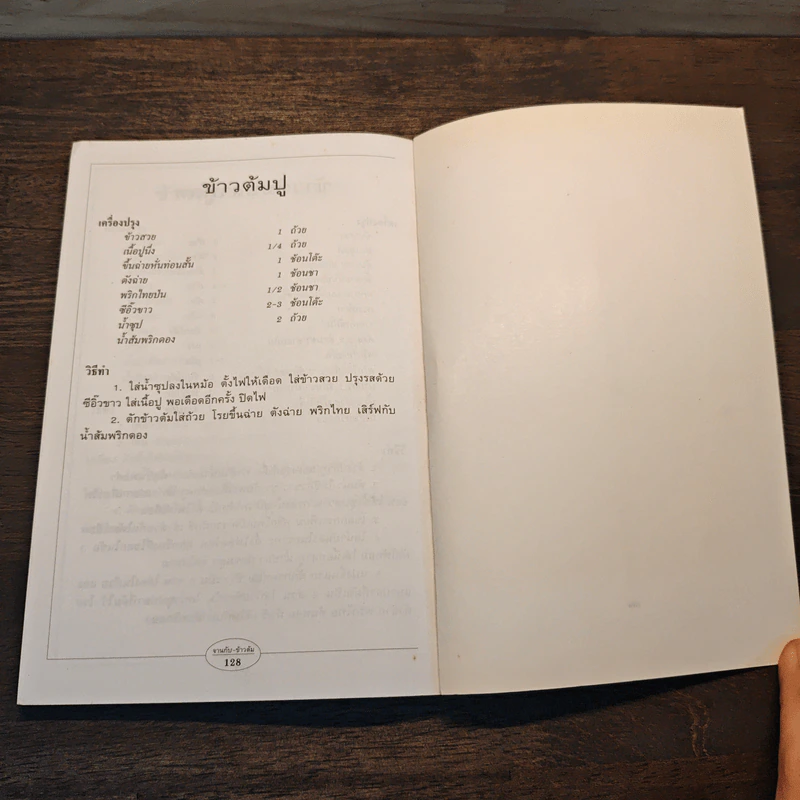 ข้าวต้มปู
เครื่องปรุง
ข้าวสวย 1 ถ้วย
เนื้อปูนึ่ง 1/4 ถ้วย
ขึ้นฉ่ายหั่นท่อนสั้น 1 ช้อนโต๊ะ
ตังฉ่าย 1 ช้อนชา
พริกไทยป่น 1/2 ช้อนชา
ซีอิ๊วขาว 2-3 ช้อนโต๊ะ
น้ำซุป 2 ถ้วย
น้ำส้มพริกดอง
วิธีทำ
1. ใส่น้ำซุปลงในหม้อ ตั้งไฟให้เดือด ใส่ข้าวสวย ปรุงรสด้วย
ซีอิ๊วขาว ใส่เนื้อปู พอเดือดอีกครั้ง ปิดไฟ
2. ตักข้าวต้มใส่ถ้วย โรยขึ้นฉ่าย ตังฉ่าย พริกไทย เสิร์ฟกับ
น้ำส้มพริกดอง
จานกับ-ข้าวต้ม
128